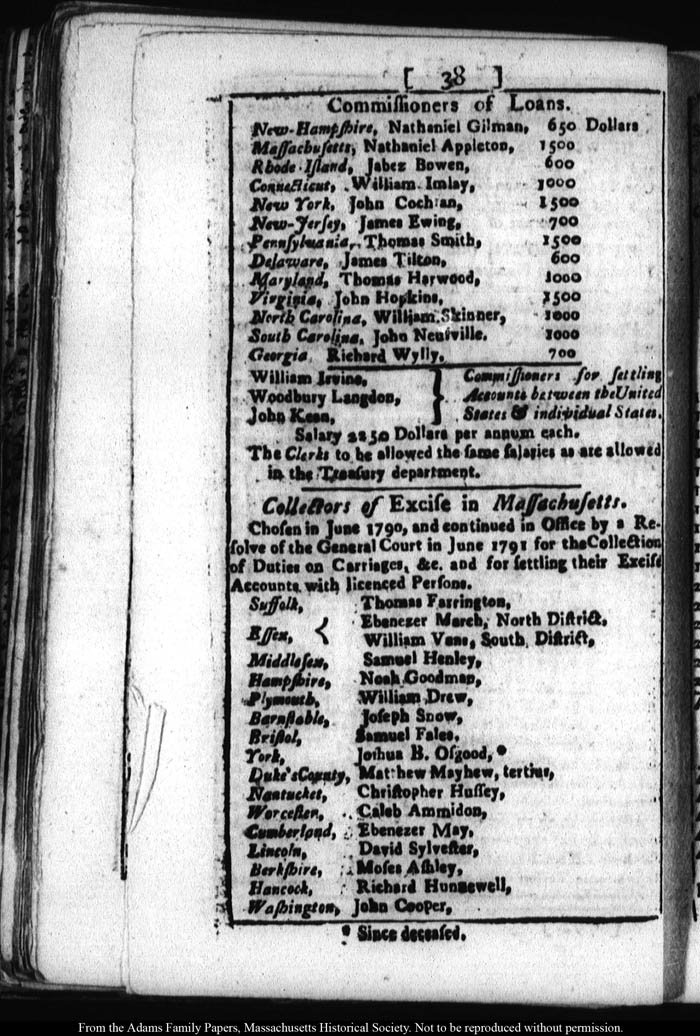 [ 38 ]
Commiſſioners of Loans.
New-Hampſhire, Nathaniel Gilman, 650 Dollars
Maſſachuſetts, Nathaniel Appleton, 1500
Rhode Iſland, Jabez Bowen, 600
Connecticut, William Imlay, 1000
New York, John Cochran, 1500
New-Jerſey, James Ewing, 700
Pennſylvania, Thomas Smith, 1500
Delaware, James Tilton, 600
Maryland, Thomas Harwood, 1000
Virginia, John Hopkins, 1500
North Carolina, William Skinner, 1000
South Carolina, John Neufville. 1000
Georgia, Richard Wylly. 700
William Irvine,
Woodbury Langdon,
John Kean,
} Commiſſioners for ſettling
Accounts between the United
States & individual States.
Salary 2250 Dollars per annum each.
The Clerks to be allowed the ſame ſalaries as are allowed
in the Treaſury department.
Collectors of Exciſe in Maſſachuſetts.
Choſen in June 1790, and continued in Office by a Re-
ſolve of the General Court in June 1791 for the Collection
of Duties on Carriages, &c. and for ſettling their Exciſe
Accounts with licenced Perſons.
Suffolk, Thomas Farrington,
Eſſex, { Ebenezer March, North Diſtrict,
William Vans, South Diſtrict,
Middleſex, Samuel Henley,
Hampſhire, Noah Goodman,
Plymouth, William Drew,
Barnſtable, Joſeph Snow,
Briſtol, Samuel Fales,
York, Joſhua B. Oſgood, *
Duke's County, Matthew Mayhew, tertius,
Nantucket, Chriſtopher Huſſey,
Worceſter, Caleb Ammidon,
Cumberland, Ebenezer May,
Lincoln, David Sylveſter,
Berkſhire, Moſes Aſhley,
Hancock, Richard Hunnewell,
Waſhington, John Cooper,
* Since deceaſed.
From the Adams Family Papers, Massachusetts Historical Society. Not to be reproduced without permission.